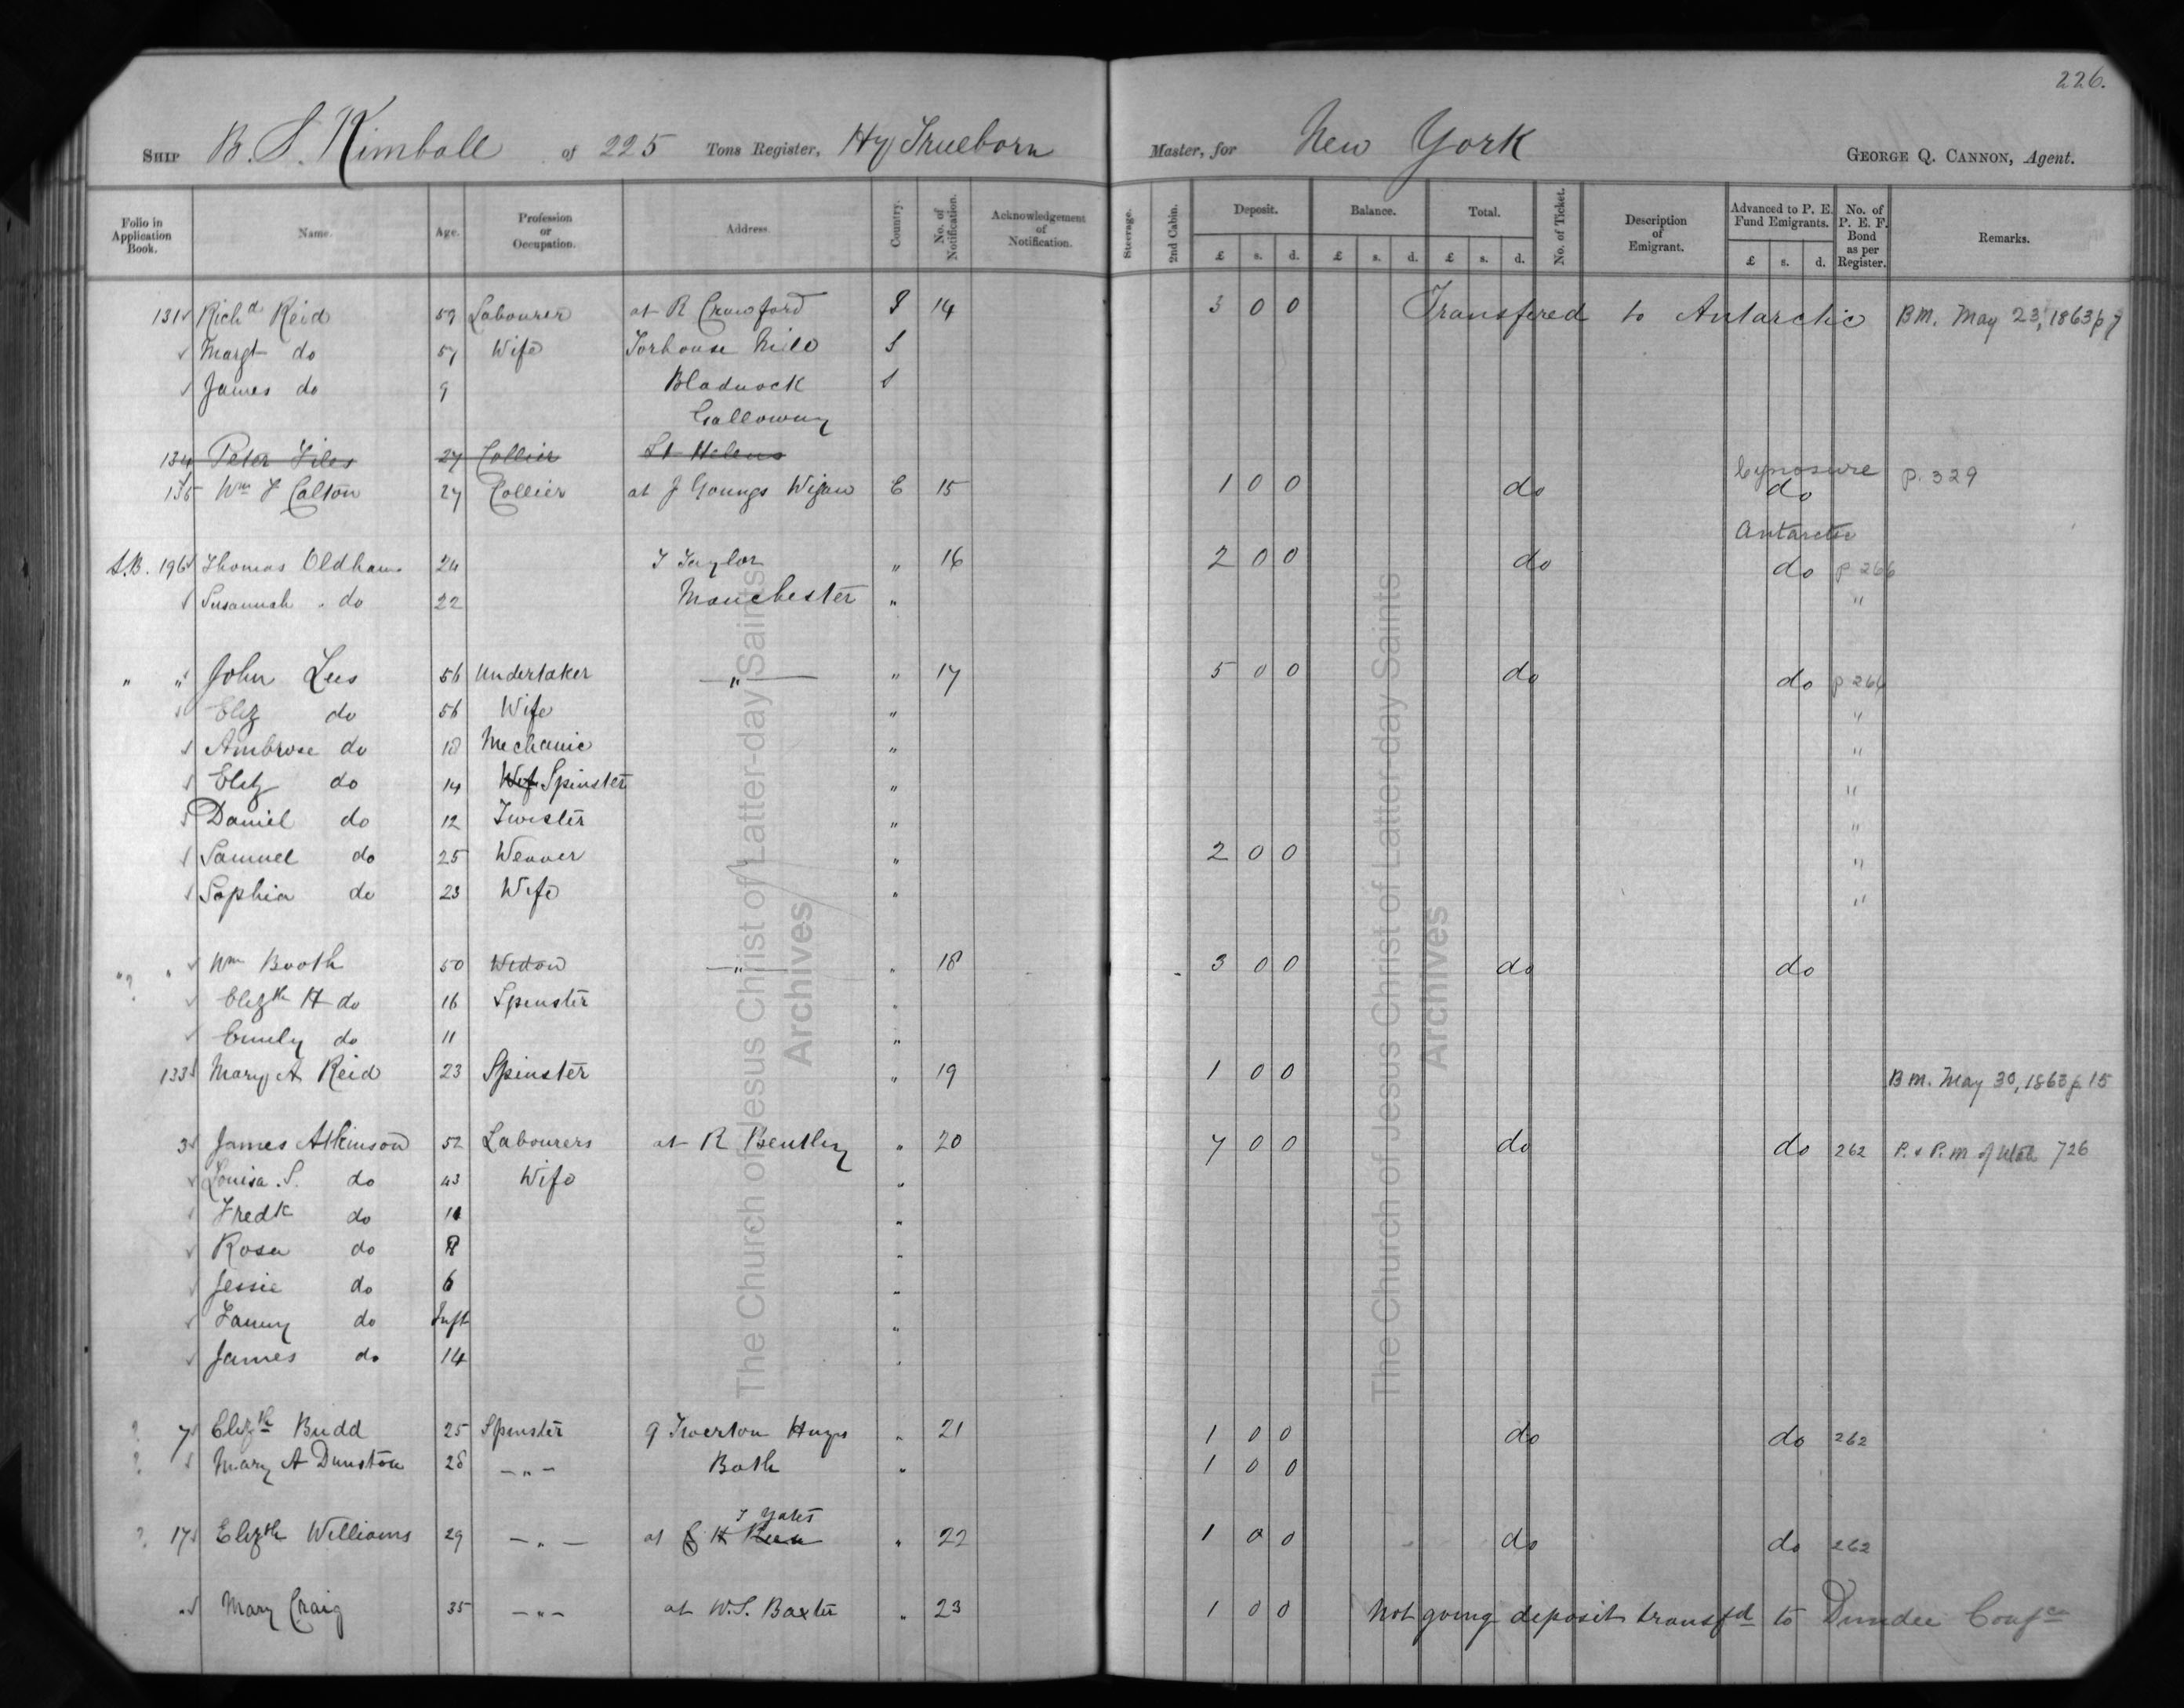 226.
SHIP B. S. Kimball of 225 Tons Register, Hy Trueborn Master, for New York GEORGE Q. CANNON, Agent.
Folio in Application Book. Name. Age. Profession or Occupation. Address. Country. No. of Notification. Acknowledgement of Notification. Steerage. 2nd Cabin. Deposit. Balance. Total. No. of Ticket. Description of Emigrant. Advanced to P. E. Fund Emigrants. No. of P. E. F. Bond as per Register. Remarks.
£ s. d. £ s. d. £ s. d. £ s. d.
131 Richd Reid 59 Labourer at R Crawford S 14 3 0 0 Transfered to Antarctic BM. May 23, 1863 p 7
Margt do 57 Wife Torhouse Mill S
James do 9 Bladnock S
Galloway
134 Peter Files 27 Collier St Helens
Cynosure
135 Wm J Calton 27 Collier at J Youngs Wigan E 15 1 0 0 do do p. 329
Antarctic
S.B. 196 Thomas Oldham 24 T Taylor " 16 2 0 0 do do p 266
Susannah do 22 Manchester " "
" " John Lees 56 Undertaker — " — " 17 5 0 0 do do p 266
Eliz do 56 Wife " "
Ambrose do 18 Mechanic " "
Eliz do 14 Wif Spinster " "
Daniel do 12 Twister " "
Samuel do 25 Weaver " 2 0 0 "
Sophia do 23 Wife " "
"? " Wm Booth 50 Widow — " — " 18 3 0 0 do do
Elizth H do 16 Spinster "
Emily do 11 "
133 Mary A Reid 23 Spinster " 19 1 0 0 BM. May 30, 1863 p. 15
3 James Atkinson 52 Labourers at R Bentley " 20 7 0 0 do do 262 P. & P. M of Utah 726
Louisa. S. do 43 Wife "
Fredk do 11 "
Rosa do 8 "
Jessie do 6 "
Fanny do Inft "
James do 14 "
? 7 Elizth Budd 25 Spinster 9 Twerton " 21 1 0 0 do do 262
? Mary A Dunston 28 — " — Bath " 1 0 0
T Yates
? 17 Elizth Williams 29 — " — at H " 22 1 0 0 do do 262
" Mary Craig 35 — " — at W. S. Baxter " 23 1 0 0 Not going deposit transfd to Dundee Confce
The Church of Jesus Christ of Latter-day Saints
Archives
The Church of Jesus Christ of Latter-day Saints
Archives